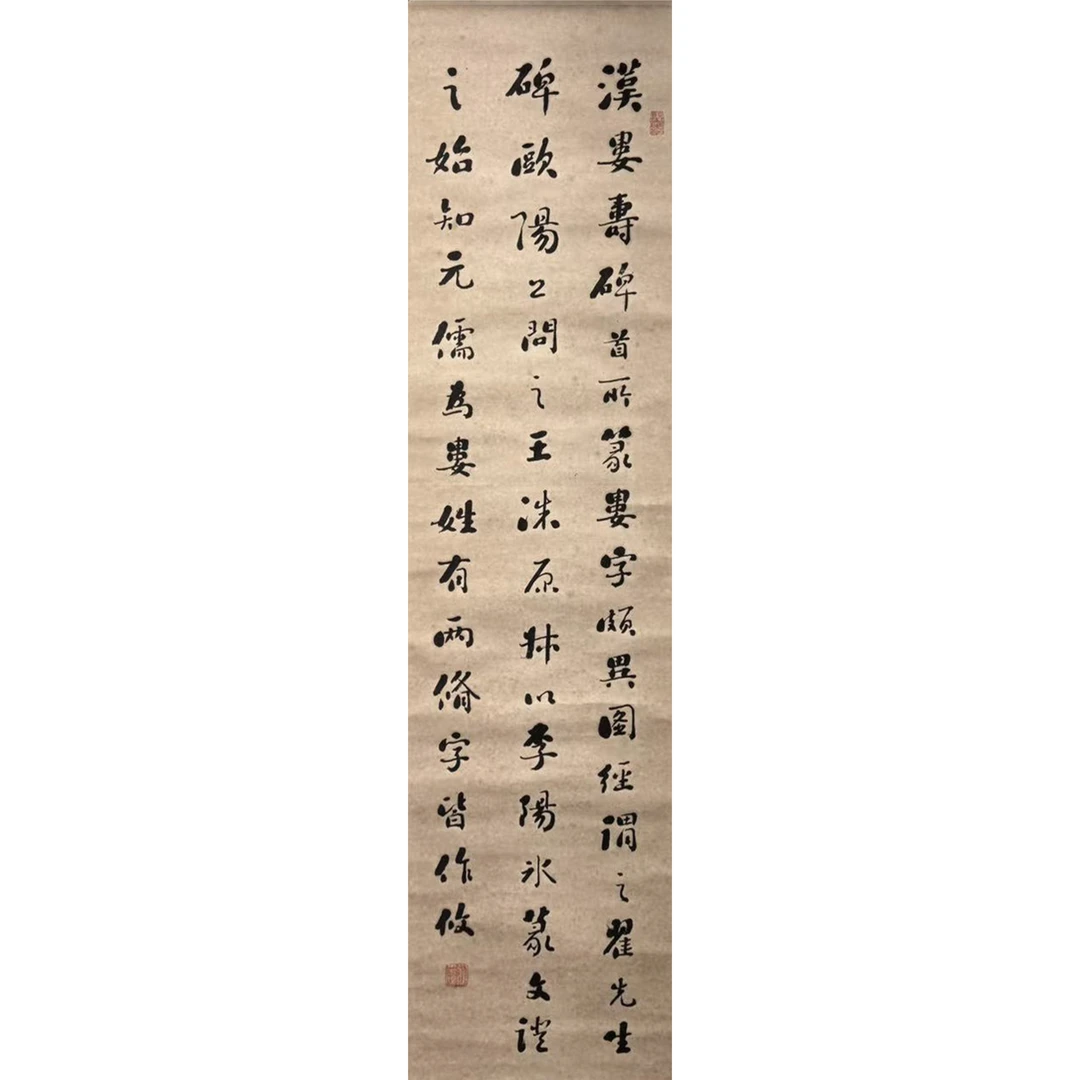 漢婁壽碑首所篆婁字頗異圖經謂之翟先生
碑歐陽公問之王洙原叔以李陽冰篆文證
之始知元儒為婁姓有兩脩字皆作攸